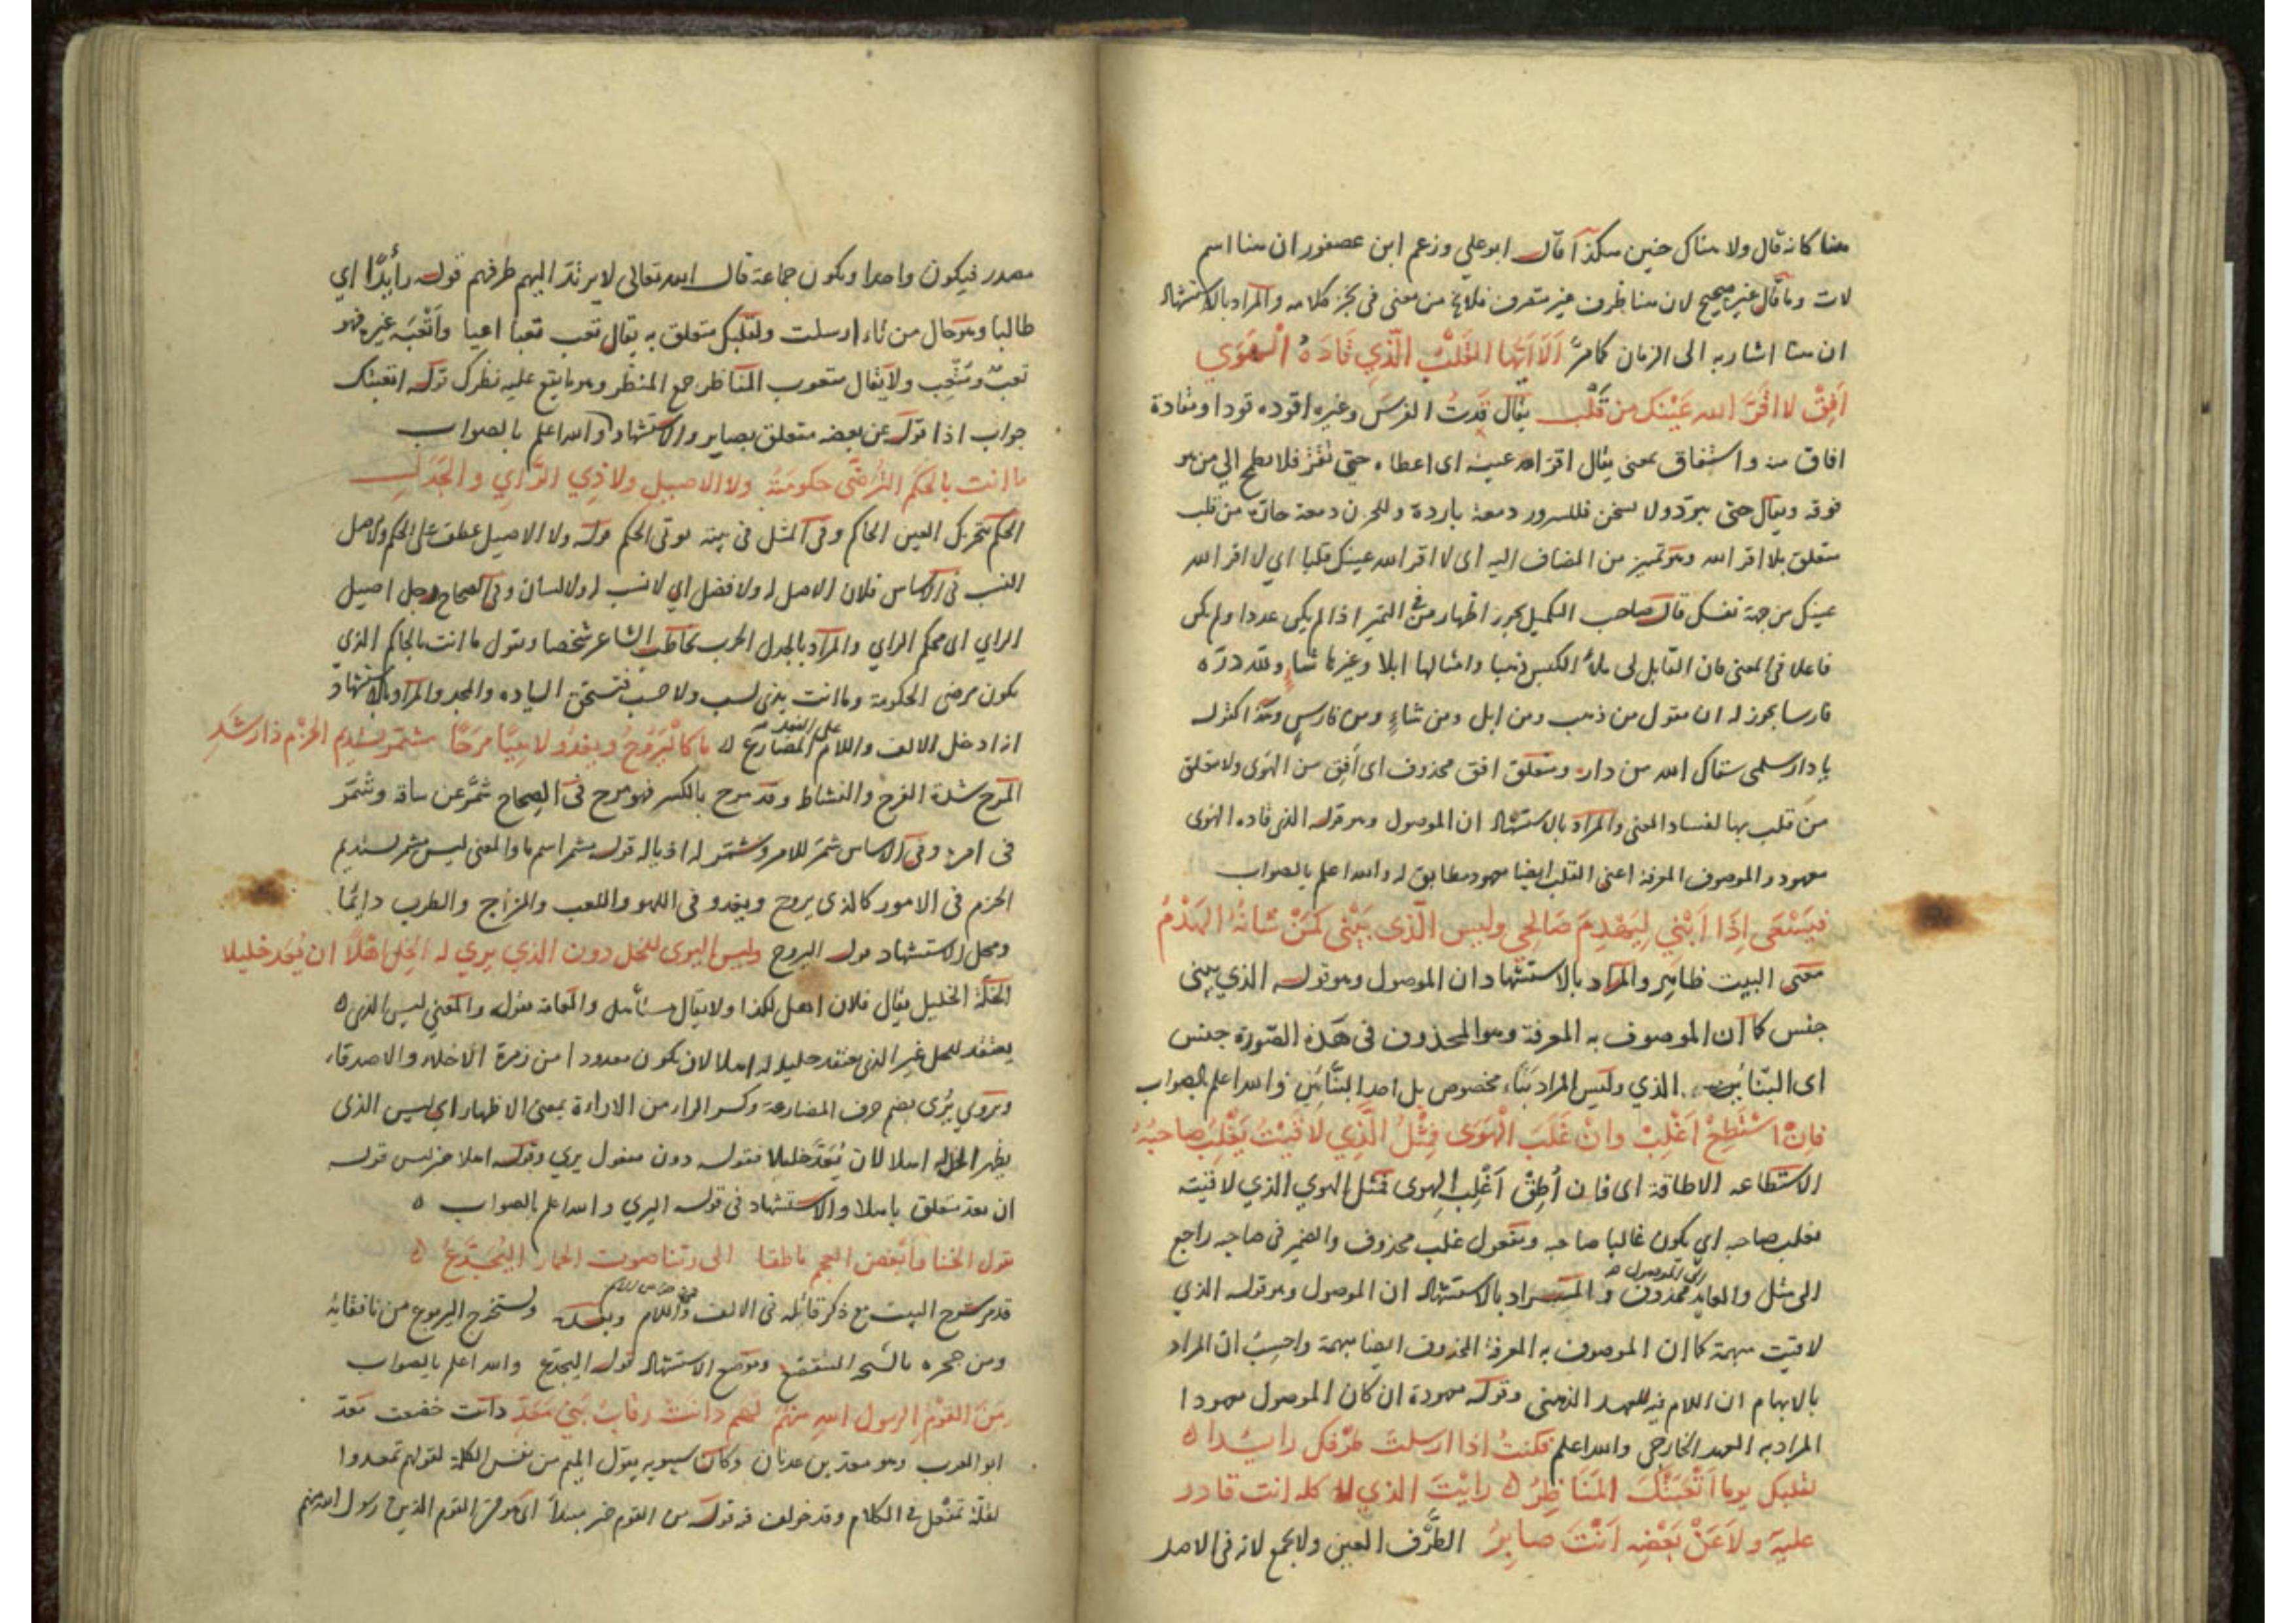 هنا كانه قال ولا هناك حنين هكذا قال ابو علي وزعم ابن عصفور ان هنا اسم
لات وما قال غير صحيح لان هنا ظرف غير متصرف فلا يخ من معنى في كلامه والمراد بالاستشهاد
ان هنا اشار به الى الزمان كما مرّ اَلَا اَيُّها القَلبُ الّذي قَادَهُ الْهَوَي
اَفِقْ لا اَقَرَّ الله عَيْنَك من قَلْب يقال قدتُ الفرسَ وغيره اقوده قودا ومقادة
افاق منه واستفاق بمعنى يقال اقر الله عينه اى اعطاه حتى تقرّ فلا يطمح الي من هو
فوقه ويقال حتى تبرد ولا تسخن فللسرور دمعة باردة وللحزن دمعة حارّة من قلب
متعلق بلا اقر الله وهو تميز من المضاف اليه اى لا اقر الله عينك قلبا اي لا اقر الله
عينك من جهة نفسك قال صاحب التكميل يجوز اظهار من في التميز اذا لم يكن عددا ولم يكن
فاعلا في المعنى فان القايل لى ملأ الكيس ذهبا وامثالها ابلا وغيرها شاءٍ ولله درّه
فارسا يجوز له ان تقول من ذهب ومن ابل ومن شاءٍ ومن فارسٍ ومنه اكثر له
يا دار سلمى سقاك الله من دار ومتعلق افق محذوف اى أفق من الهوى ولا متعلق
من قلب بها لفساد المعنى والمراد بالاستشهاد ان الموصول وهو قوله الذي قاده الهوى
معهود والموصوف المعرفة اعنى القلب ايضا معهود مطابق له والله اعلم بالصواب
فيَسْعَى اِذَا اَبْنِي لِيَهْدِمَ صَالِحِي وليس الّذى يَبْني كَمَنْ شَانُهُ الهَدْمُ
معنى البيت ظاهر والمراد بالاستشهاد ان الموصول وهو قوله الذي يبنى
جنس كما ان الموصوف به المعرفة وهو المحذوف في هَذه الصّورة جنس
اى البنّائين الذي وليس المراد بنّاء مخصوص بل احد البنّائين والله اعلم بالصواب
فاِنْ اَسْتَطِعْ اَغْلِبْ وانْ غَلَبَ الْهَوَى فمِثْلُ الّذِي لاقَيْتُ يَغْلِبُ صاحبُهْ
الاستطاعه الاطاقة اى فان أُطِقْ اَغْلِب الهوى فمثل الهوي الذي لاقيته
يغلب صاحبه اي يكون غالبا صاحبه ومفعول غلب محذوف والضمير في صاحبه راجع
الى مثل والعايد الى الموصول محذوف والمراد بالاستشهاد ان الموصول وهو قوله الذي
لاقيت مبهمة كما ان الموصوف به المعرفة المحذوف ايضا مبهمة واحسِبُ ان المراد
بالابهام ان اللام فيه للعهد الذهنى وقوله معهودة ان كان الموصول معهودا
المراد به العهد الخارجى والله اعلم فكنتُ اذا ارسلت طرفك رايدا
لقلبك يوما اَتْعَبَتْكَ المَنَاظِرُ رايْتَ الذي لا كله انت قادر
عليه ولاَ عَنْ بَعْضِهِ اَنْتَ صابِرُ الطَّرْف العين ولا يجمع لانه في الاصل
مصدر فيكون واحدا ويكون جماعة قال الله تعالى لا يرتدّ اليهم طرفهم قوله رايدًا اي
طالبا وهو حال من تاء ارسلت ولقلبك متعلق به يقال تعب تعبا اعيا واَتْعبَه غيره فهو
تعبٌ ومُتْعِب ولا يقال متعوب المناظر جمع المنظر وهو ما يقع عليه نظرك قوله اتعبتك
جواب اذا قوله عن بعضه متعلق بصابر والاستشهاد والله اعلم بالصواب
ما انت بالحكَمِ التُّرْضَى حكومتُهُ ولا الاصيلِ ولا ذِي الرَّاي والجَدَلِ
الحكم بتحريك العين الحاكم وفي المثل في بيته يوتى الحكم قوله ولا الاصيل عطف على الحكم والاصل
النسب في الاساس فلان لا اصل له ولا فصل اي لا نسب له ولا لسان وفي الصحاح رجل اصيل
الراي اى محكم الراي والمراد بالجدل الحرب يخاطب الشاعر شخصا ويقول ما انت بالحاكم الذي
يكون مرضى الحكومة وما انت بذي نسب ولا حسب فتستحق السياده والمجد والمراد بالاستشهاد
اذا دخل الالف واللام على الفعل المضارع ما كالْيَرُوحُ ويغدُو لاهِيًا مرَحًا مشمّر يستديم الحزم ذا رشَدِ
المَرح شدة الفرح والنشاط وقد مرح بالكسر فهو مرح في الصحاح شمّر عن ساقه وشمّر
فى امره وفي الاساس شمّر للامر وتشمّر له اذياله قوله مشمر اسم ما والمعنى ليس مشمر يستديم
الحزم فى الامور كالذي يروح ويغدو فى اللهو واللعب والمزاح والطرب دايمًا
ومحل الاستشهاد قوله اليروح وليس اليرى للخل دون الذي يري له الخل اهلًا ان يُعدّ خليلا
الخلّ الخليل يقال فلان اهل لكذا ولا يقال مستأهل والعامة تقوله والمعنى ليس الذى
يعتقد للخل غير الذى يعتقد خليله له اهلا لان يكون معدودا من زمرة الاخلاء والاصدقاء
ويروي يُرى بضم حرف المضارعة وكسر الراء من الاراءة بمعنى الاظهار اي ليس الذى
يظهر الخل له اهلا لان يُعَدَّ خليلا فقوله دون مفعول يري وقوله اهلا خبر ليس قوله
ان يعد متعلق باهلا والاستشهاد فى قوله اليري والله اعلم بالصواب
يقول الخنا وأبغض العجم ناطقا الى ربّنا صوت الحمار اليُجَدَّعُ
قد مر شرح البيت مع ذكر قائله فى الالف واللام وبعده ويستخرج اليربوع من نافقائه
ومن جحره بالشيحة اليتقصع وموضع الاستشهاد قوله اليجدع والله اعلم بالصواب
مِنَ القومِ الرسول اللهِ منهمْ لهم دانَتْ رقابُ بَنِي مَعَدِّ دانت خضعت معَدّ
ابو العرب وهو معد بن عدنان وكان سيبويه يقول الميم من نفس الكلمة لقولهم تمعددوا
لقلّة تمفعل فى الكلام وقد خولف فيه قوله من القوم خبر مبتدأ اى هو من القوم الذين رسول الله منهم